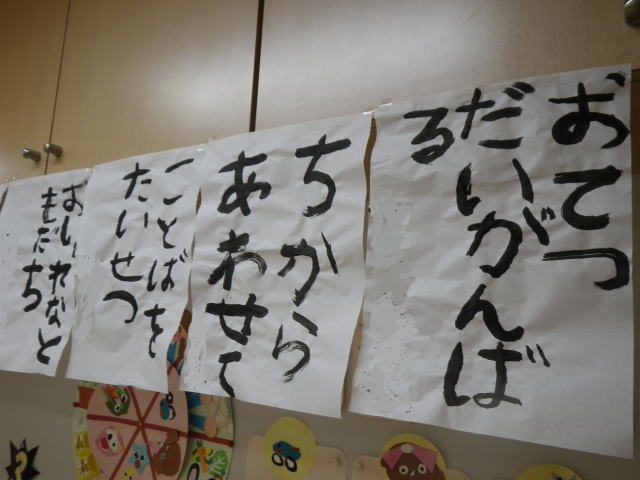 おてつ
だいがんば
る
ちから
あわせて
ことばを
たいせつ
おしいれなと
もだち